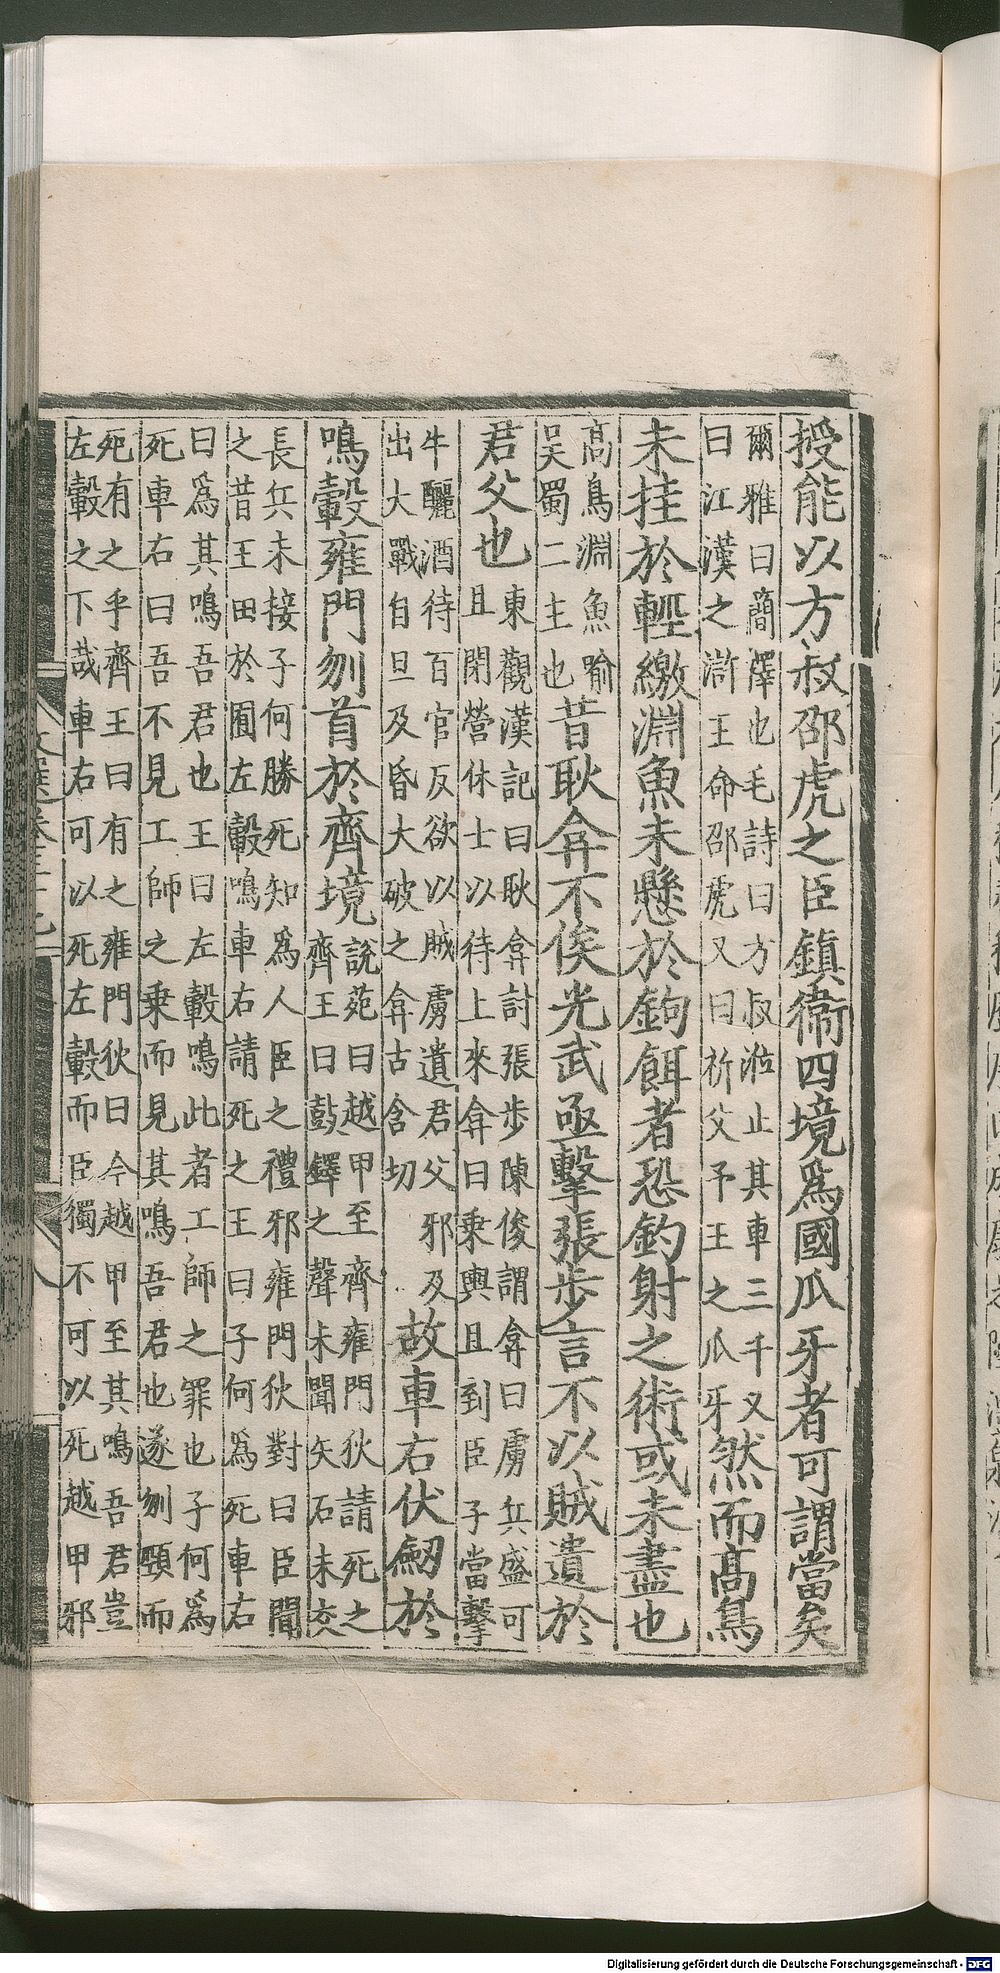 授能以方叔邵虎之臣鎮衞四境爲國爪牙者可謂當矣
爾雅曰簡擇也毛詩曰方叔涖止其車三千又
曰江漢之滸王命邵虎又曰祈父予王之爪牙
然而高鳥
未挂於輕繳淵魚未懸於鉤餌者恐釣射之術或未盡也
高鳥淵魚喻
吴蜀二主也
昔耿弇不俟光武亟擊張步言不以賊遺於
君父也
東觀漢記曰耿弇討張步陳俊謂弇曰虜兵盛可
且閉營休士以待上來弇曰乗輿且到臣子當擊
牛釃酒待百官反欲以賊虜遺君父邪及
出大戰自旦及昏大破之弇古含切
故車右伏劒於
鳴轂雍門刎首於齊境
說苑曰越甲至齊雍門狄請死之
齊王曰鼓鐸之聲未聞矢石未交
長兵未接子何勝死知爲人臣之禮邪雍門狄對曰臣聞
之昔王田於囿左轂鳴車右請死之王曰子何爲死車右
曰爲其鳴吾君也王曰左轂鳴此者工師之罪也子何爲
死車右曰吾不見工師之乗而見其鳴吾君也遂刎頸而
死有之乎齊王曰有之雍門狄曰今越甲至其鳴吾君豈
左轂之下哉車右可以死左轂而臣獨不可以死越甲邪
Digitalisierung gefördert durch die Deutsche Forschungsgemeinschaft - DFG